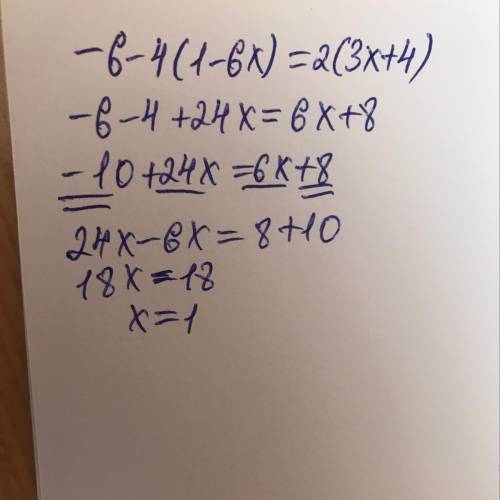 -6-4(1-6x)=2(3x+4)
-6-4+24x=6x+8
-10+24x=6x+8
24x-6x=8+10
18x=18
x=1